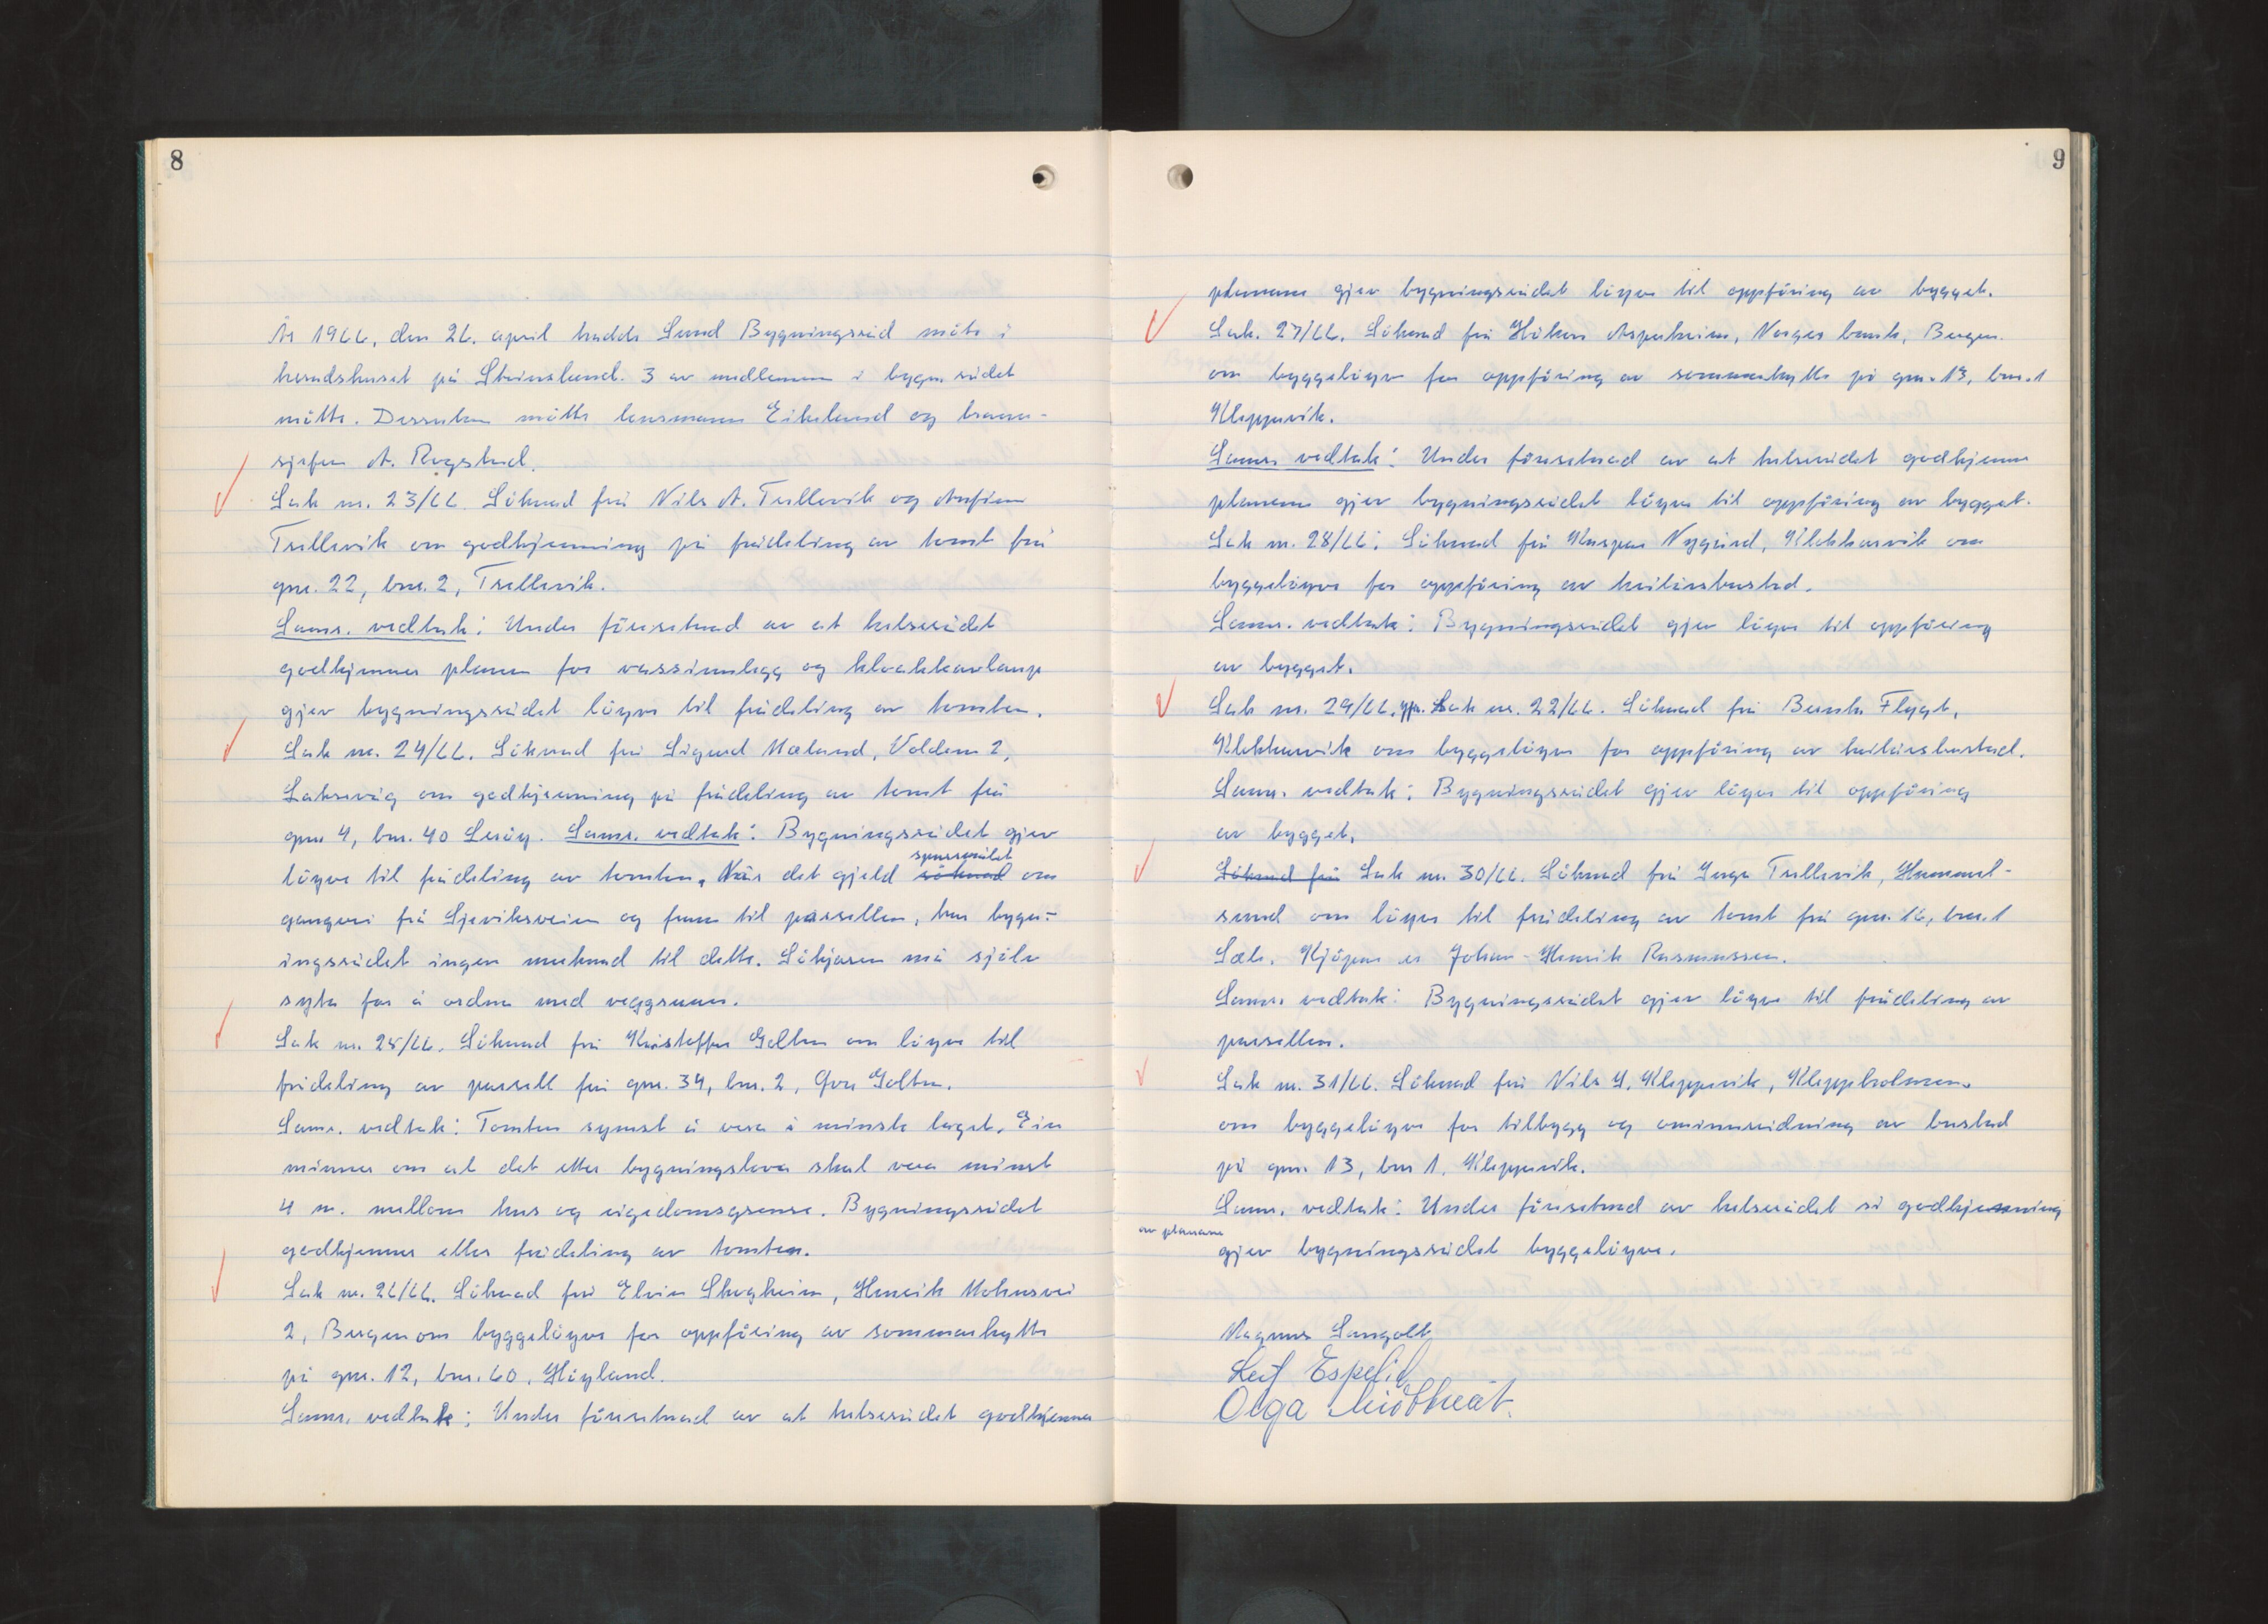 8
År 1966, den 26. april hadde Sund Bygningsråd møte i
heradshuset på Steinsland. 3 av medlemem i bygn.rådet
møtte. Dessutan møtte lensmann Eikeland og brann-
sjefen A. Rogstad.
Sak nr. 23/66. Søknad frå Nils A. Trellevik og Anfinn
Trellevik om godkjenning på frådeling av tomt frå
gnr. 22, bnr. 2, Trellevik.
Samr. vedtak: Under føresetnad av at helserådet
godkjenner planen for vassinnlegg og kloakkavlaup
gjev bygningsrådet løyve til frådeling av tomten.
Sak nr. 24/66. Søknad frå Sigurd Mæland, Volden 2,
Laksevåg om godkjenning på frådeling av tomt frå
gnr 4, bnr. 40 Lerøy. Samr. vedtak: Bygningsrådet gjev
løyve til frådeling av tomten. Når det gjeld søknad om
spursmålet
gangvei frå Sjøviksveien og fram til parsellen, har bygn-
ingsrådet ingen merknad til dette. Søkjaren må sjølv
syte for å ordne med veggrunn.
Sak nr. 25/66. Søknad frå Kristoffer Golten om løyve til
frådeling av parsell frå gnr. 34, bnr. 2, Øvre Golten.
Samr. vedtak: Tomten synest å vera i minste laget. Ein
minner om at det etter bygningslova skal vera minst
4 m. mellom hus og eigedomsgrense. Bygningsrådet
godkjenner elles frådeling av tomten.
Sak nr. 26/66. Søknad frå Elvin Skogheim, Henrik Mohnsvei
2, Bergen om byggeløyve for oppføring av sommarhytte
på gnr. 12, bnr. 60, Høyland.
Samr. vedtak: Under føresetnad av at helserådet godkjenner
9
planane gjev bygningsrådet løyve til oppføring av bygget.
Sak. 27/66. Søknad frå Håkon Asperheim, Norges bank, Bergen.
om byggeløyve for oppføring av sommarhytte på gnr. 13, bnr. 1
Kleppevik.
Samr. vedtak: Under føresetnad av at helserådet godkjenne
planane gjev bygningsrådet løyve til oppføring av bygget.
Sak nr. 28/66. Søknad frå Kaspar Nygård, Klokkarvik om
byggeløyve for oppføring av heilårsbustad.
Samr. vedtak: Bygningsrådet gjev løyve til oppføring
av bygget.
Sak nr. 29/66, jfr. Sak nr. 22/66. Søknad frå Bernh. Fløgt,
Klokkarvik om byggeløyve for oppføring av heilårsbustad.
Samr. vedtak: Bygningsrådet gjev løyve til oppføring
av bygget.
Søknad frå Sak nr. 30/66. Søknad frå Inge Trellevik, Hammel-
sund om løyve til frådeling av tomt frå gnr. 16, bnr. 1
Sæle. Kjøpar er Johan-Henrik Rasmussen.
Samr. vedtak: Bygningsrådet gjev løyve til frådeling av
parsellen.
Sak nr. 31/66. Søknad frå Nils Y. Kleppevik, Kleppholmen
om byggeløyve for tilbygg og ominnreidning av bustad
på gnr. 13, bnr 1. Kleppevik.
Samr. vedtak: Under føresetnad av helserådet si godkjenning
av planane
gjev bygningsrådet byggeløyve.
Magnus Sangolt
Leif Espelid
Olga